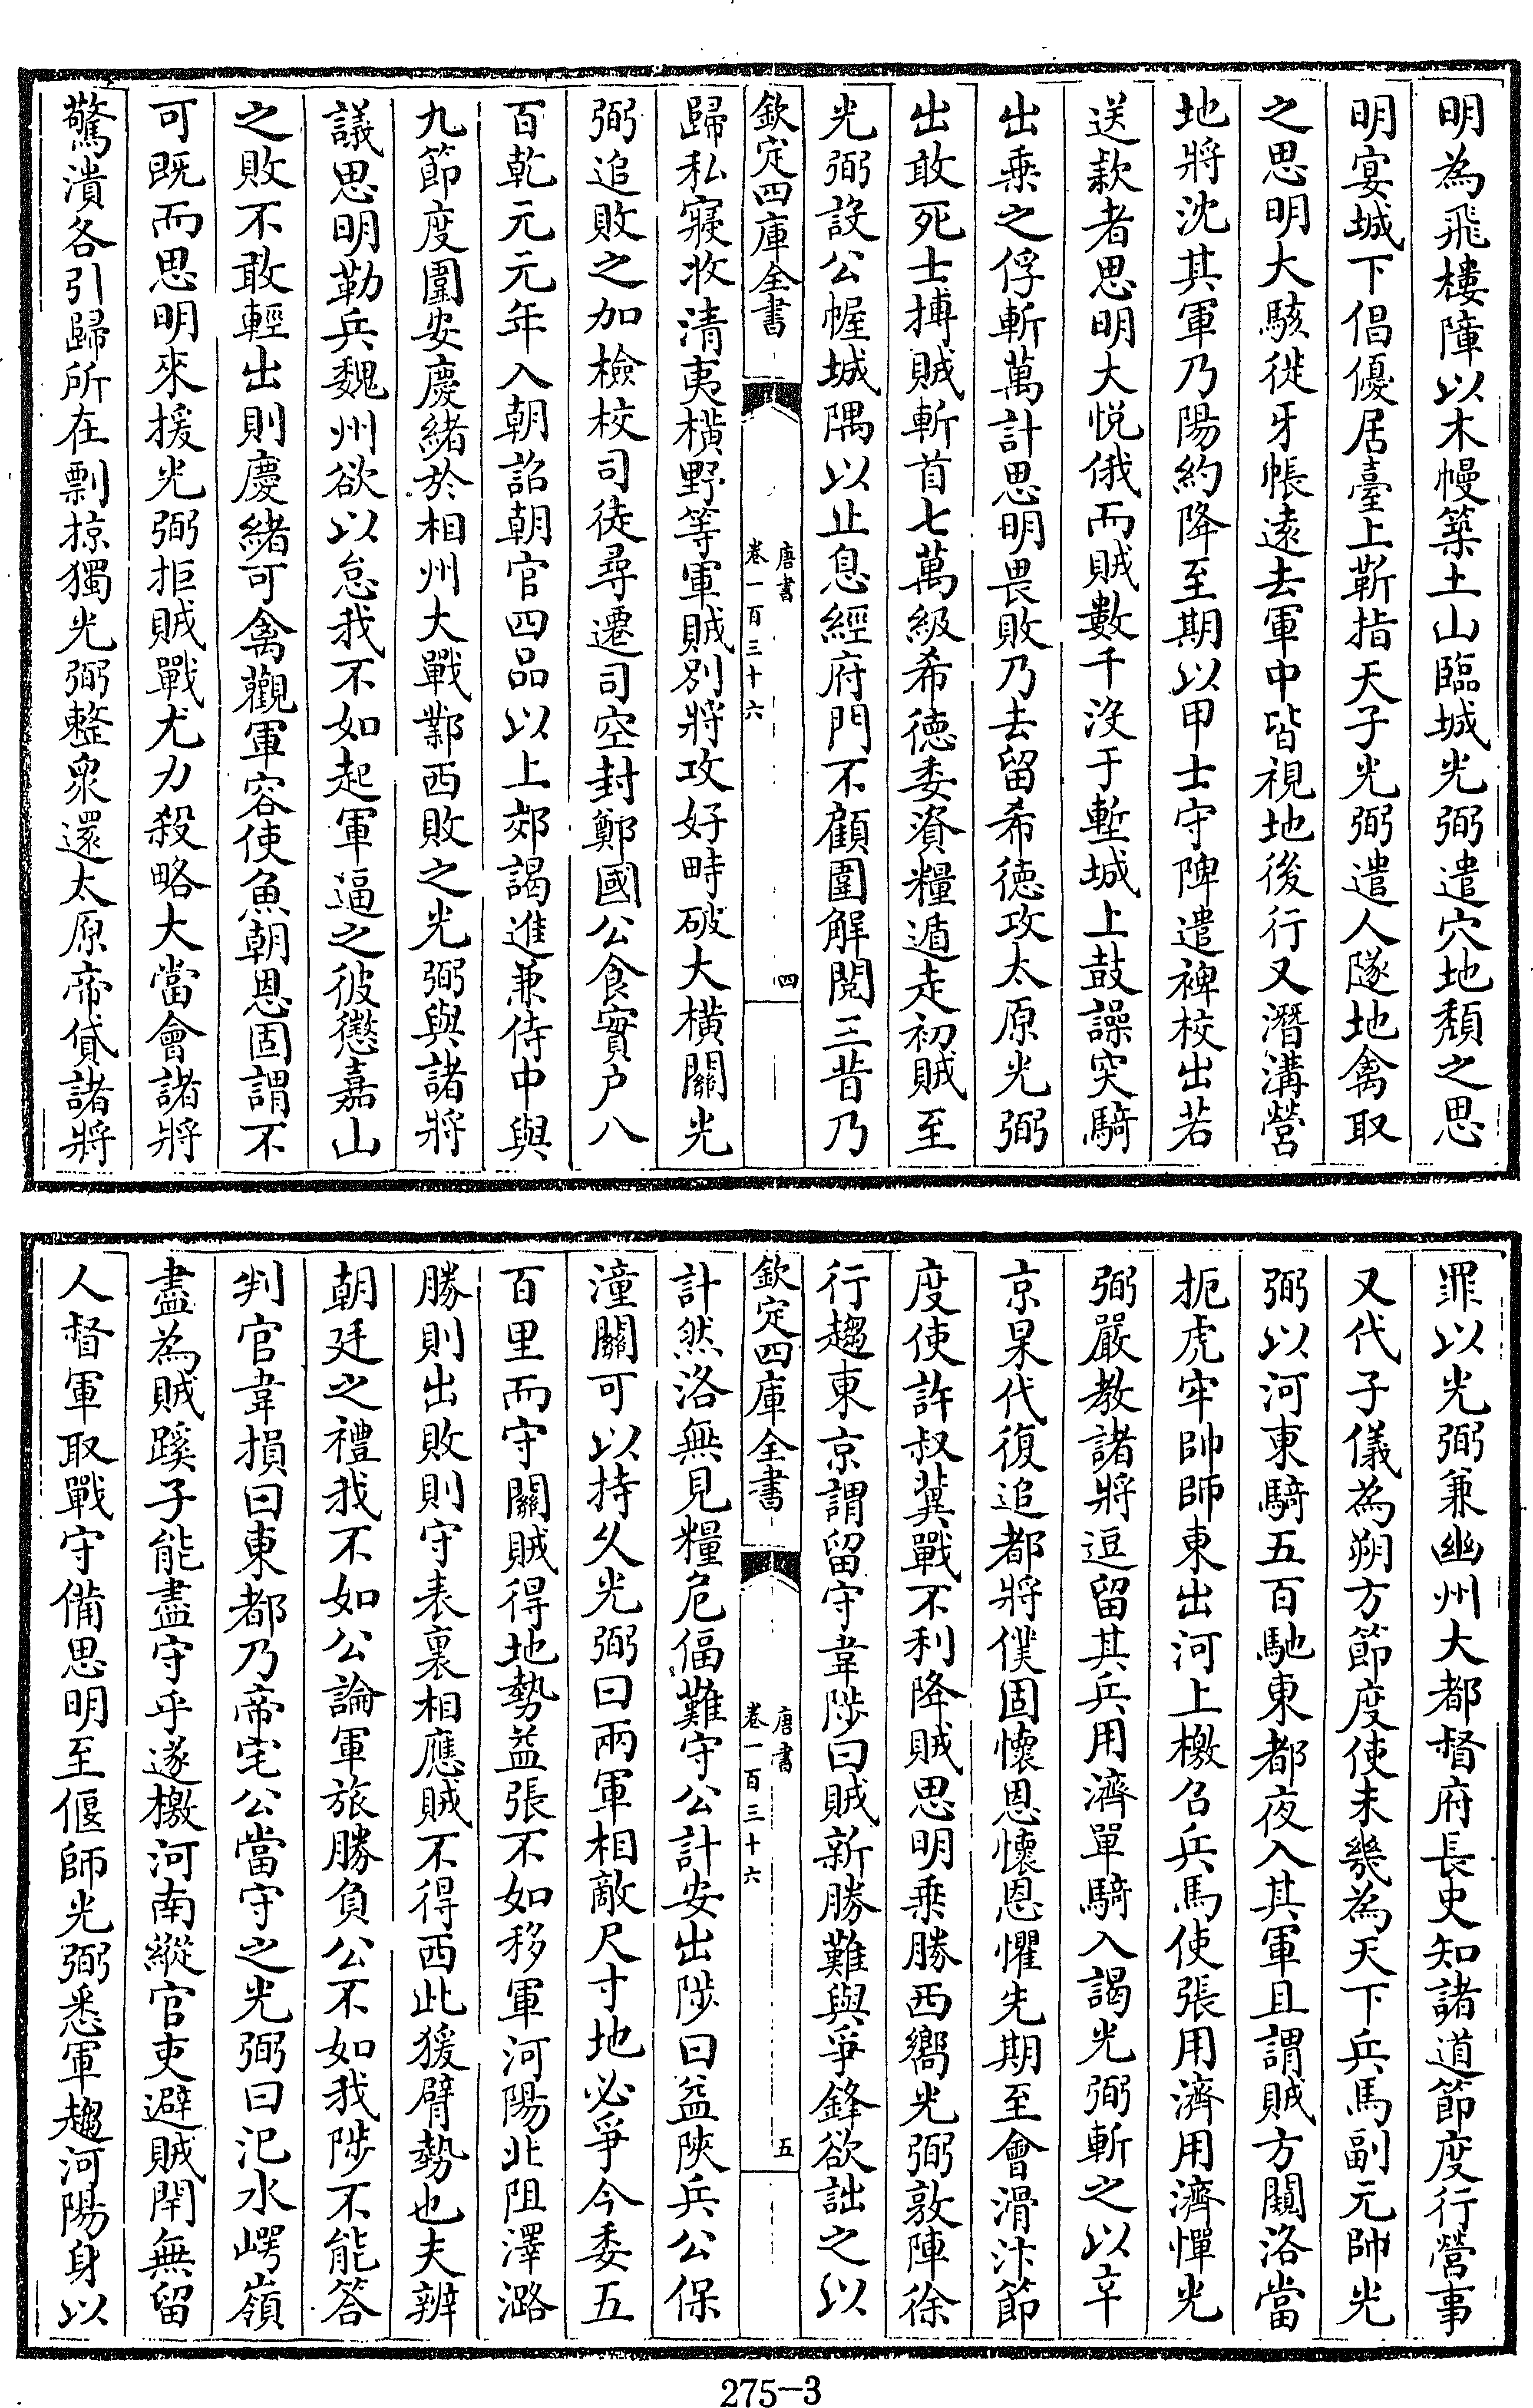 明為飛樓障以木幔築土山臨城光弼遣穴地頹之思
明宴城下倡優居臺上靳指天子光弼遣人隧地禽取
之思明大駭徙牙帳遠去軍中皆視地後行又潛溝營
地將沈其軍乃陽約降至期以甲士守陴遣裨校出若
送款者思明大悅俄而賊數千没于塹城上鼓譟突騎
出乗之俘斬萬計思明畏敗乃去留希徳攻太原光弼
出敢死士搏賊斬首七萬級希徳委資糧遁走初賊至
光弼設公幄城隅以止息經府門不顧圍解閲三昔乃
欽定四庫全書
唐書
卷一百三十六
四
歸私寢收清夷橫野等軍賊别將攻好畤破大橫關光
弼追敗之加檢校司徒尋遷司空封鄭國公食實户八
百乾元元年入朝詔朝官四品以上郊謁進兼侍中與
九節度圍安慶緒於相州大戰鄴西敗之光弼與諸將
議思明勒兵魏州欲以怠我不如起軍逼之彼懲嘉山
之敗不敢輕出則慶緒可禽觀軍容使魚朝恩固謂不
可既而思明來援光弼拒賊戰尤力殺略大當會諸將
驚潰各引歸所在剽掠獨光弼整衆還太原帝貸諸將
罪以光弼兼幽州大都督府長史知諸道節度行營事
又代子儀為朔方節度使未幾為天下兵馬副元帥光
弼以河東騎五百馳東都夜入其軍且謂賊方闚洛當
扼虎牢帥師東出河上檄召兵馬使張用濟用濟憚光
弼嚴教諸將逗留其兵用濟單騎入謁光弼斬之以辛
京杲代復追都將僕固懷恩懷恩懼先期至會滑汴節
度使許叔冀戰不利降賊思明乗勝西嚮光弼敦陣徐
行趨東京謂留守韋陟曰賊新勝難與爭鋒欲詘之以
欽定四庫全書
唐書
卷一百三十六
五
計然洛無見糧危偪難守公計安出陟曰益陜兵公保
潼關可以持久光弼曰兩軍相敵尺寸地必爭今委五
百里而守關賊得地勢益張不如移軍河陽北阻澤潞
勝則出敗則守表裏相應賊不得西此猨臂勢也夫辨
朝廷之禮我不如公論軍旅勝負公不如我陟不能答
判官韋損曰東都乃帝宅公當守之光弼曰汜水崿嶺
盡為賊蹊子能盡守乎遂檄河南縱官吏避賊閈無留
人督軍取戰守備思明至偃師光弼悉軍趨河陽身以
275-3